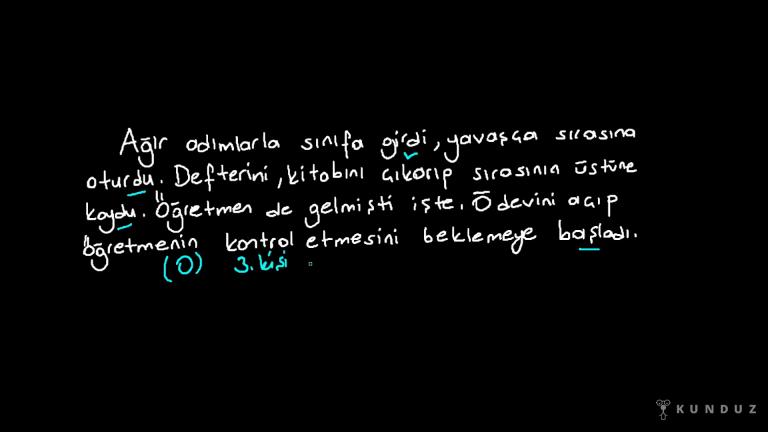 Ağır adımlarla sınıfa girdi, yavaşça sırasına
oturdu. Defterini, kitabını çıkarıp sırasının üstüne
koydu. Öğretmen de gelmişti işte. Ödevini açıp
öğretmenin kontrol etmesini beklemeye başladı.
(O) 3. kişi
KUNDUZ